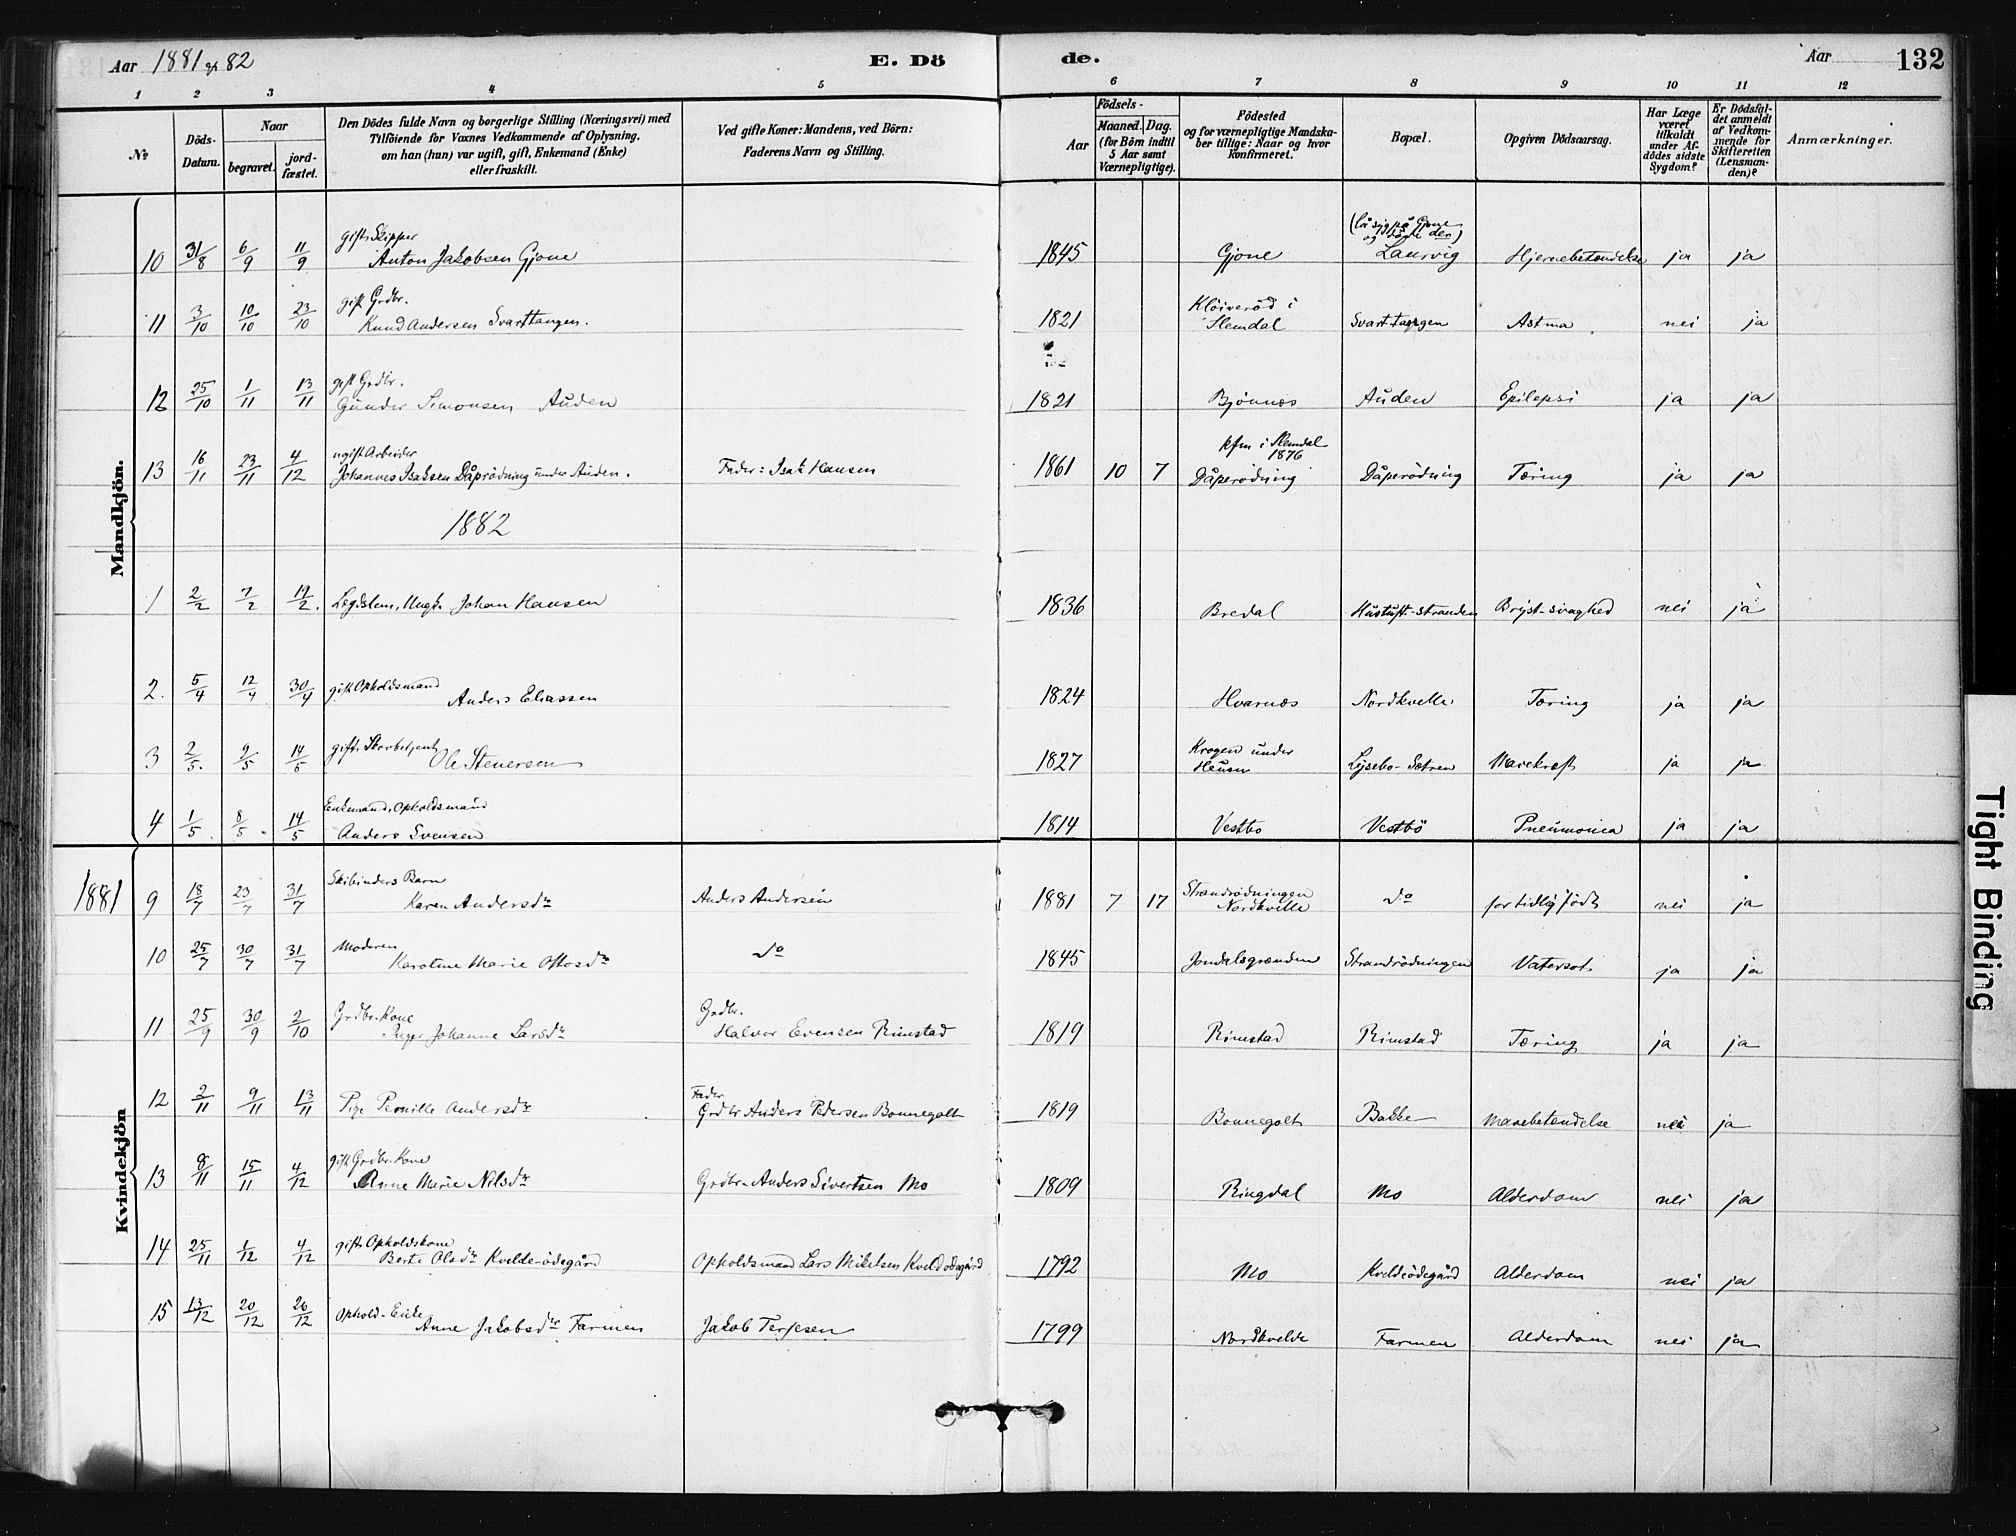 Aar 1881 og 82 E. Dö de. Aar 132
1 2 3 4 5 6 7 8 9 10 11 12
No Döds-Datum. Naar begravet. jord-fæstet. Den Dödes fulde Navn og borgerlige Stilling (Næringsvei) med Tilföiende for Voxnes Vedkommende af Oplysning. om han (hun) var ugift, gift, Enkemand (Enke) eller fraskilt. Ved gifte Koner: Mandens, ved Börn: Faderens Navn og Stilling. Aar Födsels- Maaned. Dag. (for Börn indtil 5 Aar samt Værnepligtige). Födested og for værnepligtige Mandskaber tillige: Naar og hvor konfirmeret. Bopæl. Opgiven Dödsaarsag. Har Læge været tilkaldt under Afdödes sidste Sygdom? Er Dödsfaldet anmeldt af Vedkommende for Skifteretten (Lensmanden)? Anmærkninger.
Mandkjön.
10 31/8 6/9 11/9 gift Skipper Anton Jakobsen Gjone 1845 Gjone (lå syg på Gjone og döde der) Laurvig Hjernebetændelse ja ja
11 3/10 10/10 23/10 gift Grdbr. Knud Andersen Svarttangen. 1821 Klöiveröd i Slemdal Svarttangen Astma nei ja
12 25/10 1/11 13/11 gift Grdbr. Gunder Simonsen Auden 1821 Bjönnes Auden Epilepsi ja ja
13 16/11 23/11 4/12 ugift Arbeider Johannes Isaksen Dåprödning under Auden. Fader: Isak Hansen 1861 10 7 kfm i Slemdal 1876 Dåperödning Dåperödning Tæring ja ja
1882
1 2/2 7/2 19/2. Legdslem, Ungk. Johan Hansen 1836 Bredal -stranden Bryst-svaghed nei ja
2. 5/4 12/4 30/4 gift Opholdsmand Anders Eliassen 1824 Hvarnæs Nordkvelle Tæring ja ja
3 2/5. 9/5 14/5 gift Skovbetjent Ole Stenersen 1827 Krogen under Lysebo-Sætren Mavekræft ja ja
4 1/5. 8/5. 14/5 Enkemand, Opholdsmand Anders Svensen 1814 Vestbo Vestbö Pneumonica ja ja
Kvindekjön
1881 9 18/7 23/7 31/7 Skibinders Barn Karen Andersdr Anders Andersen 1881 7 17 Strandrödningen Nordkvelle do for tidlig födt nei ja
10 25/7 30/7 31/7 Moderen Karoline Marie Ottosdr do 1845 Jondalsgrænden Strandrödningen Vatersot ja ja
11 25/9 30/9 2/10 Grdbr. Kone Inger Johanne Larsdr Grdbr. Halvor Evensen Rimstad 1819 Rimstad Rimstad Tæring ja ja
12 2/11 9/11 13/11 Pige Pernille Andersdr Fader Grdbr Anders Pedersen Bonnegolt 1819 Bonnegolt Bakke Mavebetændelse nei ja
13 8/11 15/11 4/12 gift Grdbr. Kone Anne Marie Nilsdr Grdbr. Anders Sivertsen Mo 1809 Ringdal Mo Alderdom nei ja
14 25/11 1/12 4/12 gift Opholdskone Berte Olsdr Kvelde-ödegård Opholdsmand Lars Mikelsen Kveldödegård 1792 Mo Kveldeödegård Alderdom nei ja
15 13/12 20/12 26/12 Ophold-Enke Anne Jakobsdr Farmen Jakob Terjesen 1799 Nordkvelde Farmen Alderdom nei ja
Tight Binding